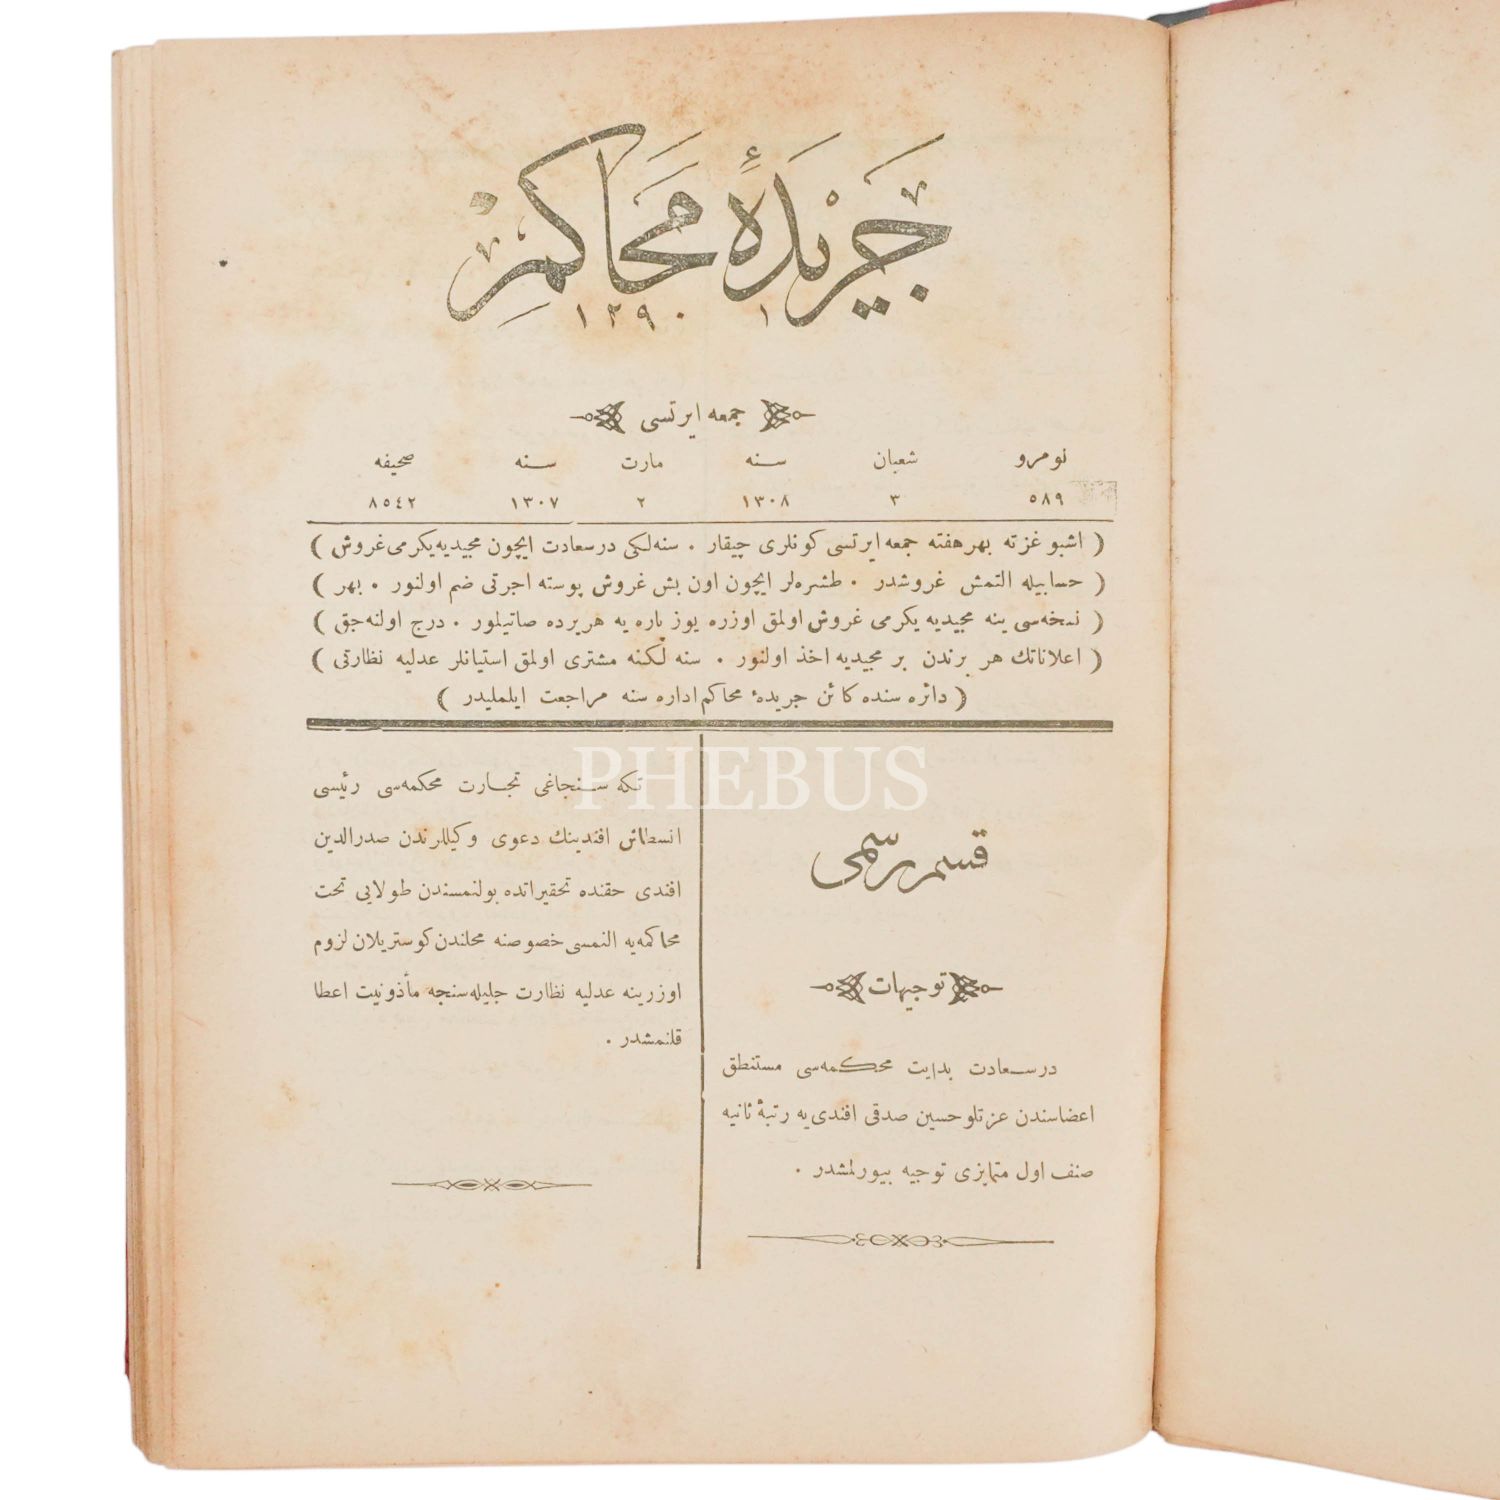 جريدهٔ محاكم
١٢٩٠
جمعه ايرتسى
نومرو شعبان سنه مارت سنه صحيفه
٥٨٩ ٣ ١٣٠٨ ٢ ١٣٠٧ ٨٥٤٢
( اشبو غزته بهر هفته جمعه ايرتسى كونلرى چيقار . سنه‌لكى درسعادت ايچون مجيديه يكرمى غروش )
( حسابيله التمش غروشدر . طشره‌لر ايچون اون بش غروش پوسته اجرتى ضم اولنور . بهر )
( نسخه‌سى ينه مجيديه يكرمى غروش اولمق اوزره يوز پاره يه هر يرده صاتيلور . درج اولنه جق )
( اعلاناتك هر برندن بر مجيديه اخذ اولنور . سنه لكنه مشترى اولمق استيانلر عدليه نظارتى )
( دائره سنده كائن جريدهٔ محاكم اداره سنه مراجعت ايلمليدر )
قسم رسمى
توجيهات
درسعادت بدايت محكمه‌سى مستنطق
اعضاسندن عزتلو حسين صدقى افندى‌يه رتبهٔ ثانيه
صنف اول متمايزى توجيه بيورلمشدر .
تكه سنجاغى تجارت محكمه‌سى رئيسى
افندينك دعوى وكيللرندن صدرالدين
افندى حقنده تحقيراتده بولنمسندن طولايى تحت
محاكمه‌يه النمسى خصوصنه محلندن كوستريلان لزوم
اوزرينه عدليه نظارت جليله‌سنجه مأذونيت اعطا
قلنمشدر .
PHEBUS